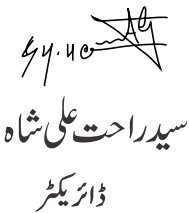 سید راحت علی شاہ
ڈائریکٹر